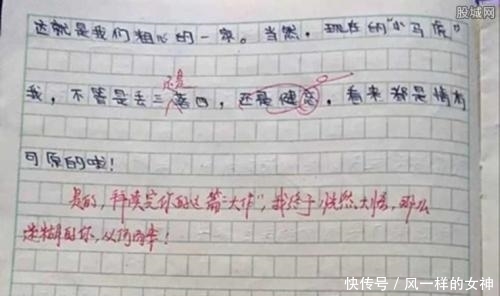 股城网
这就是我们粗心的一家。当然,现在的“小马虎”
还是
我,不管是丢三落四,还是健忘,看来都是情有
可原的啦!
是的,拜读完你的这篇“大作”,我终于恍然大悟,那么
迷糊的你,从何而来!
快传号/风一样的女神